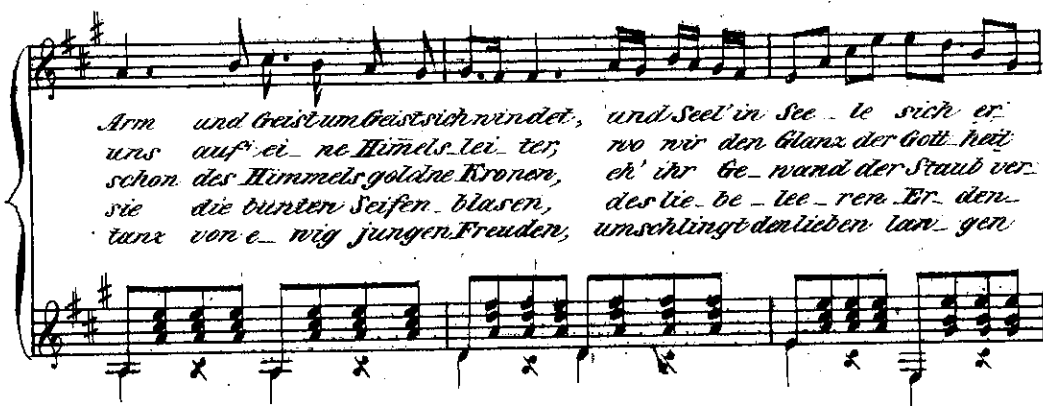 Arm und Geist um Geist sich windet, und Seel' in See_le sich er_
uns auf ei_ne Himels_lei_ter, wo wir den Glanz der Gott_heit
schon des Himmels goldne Kronen, eh' ihr Ge_wand der Staub ver_
sie die bunten Seifen_blasen, des lie_be_lee_ren Er_den_
tanz von e_wig jungen Freuden, umschlingt den lieben lan_gen